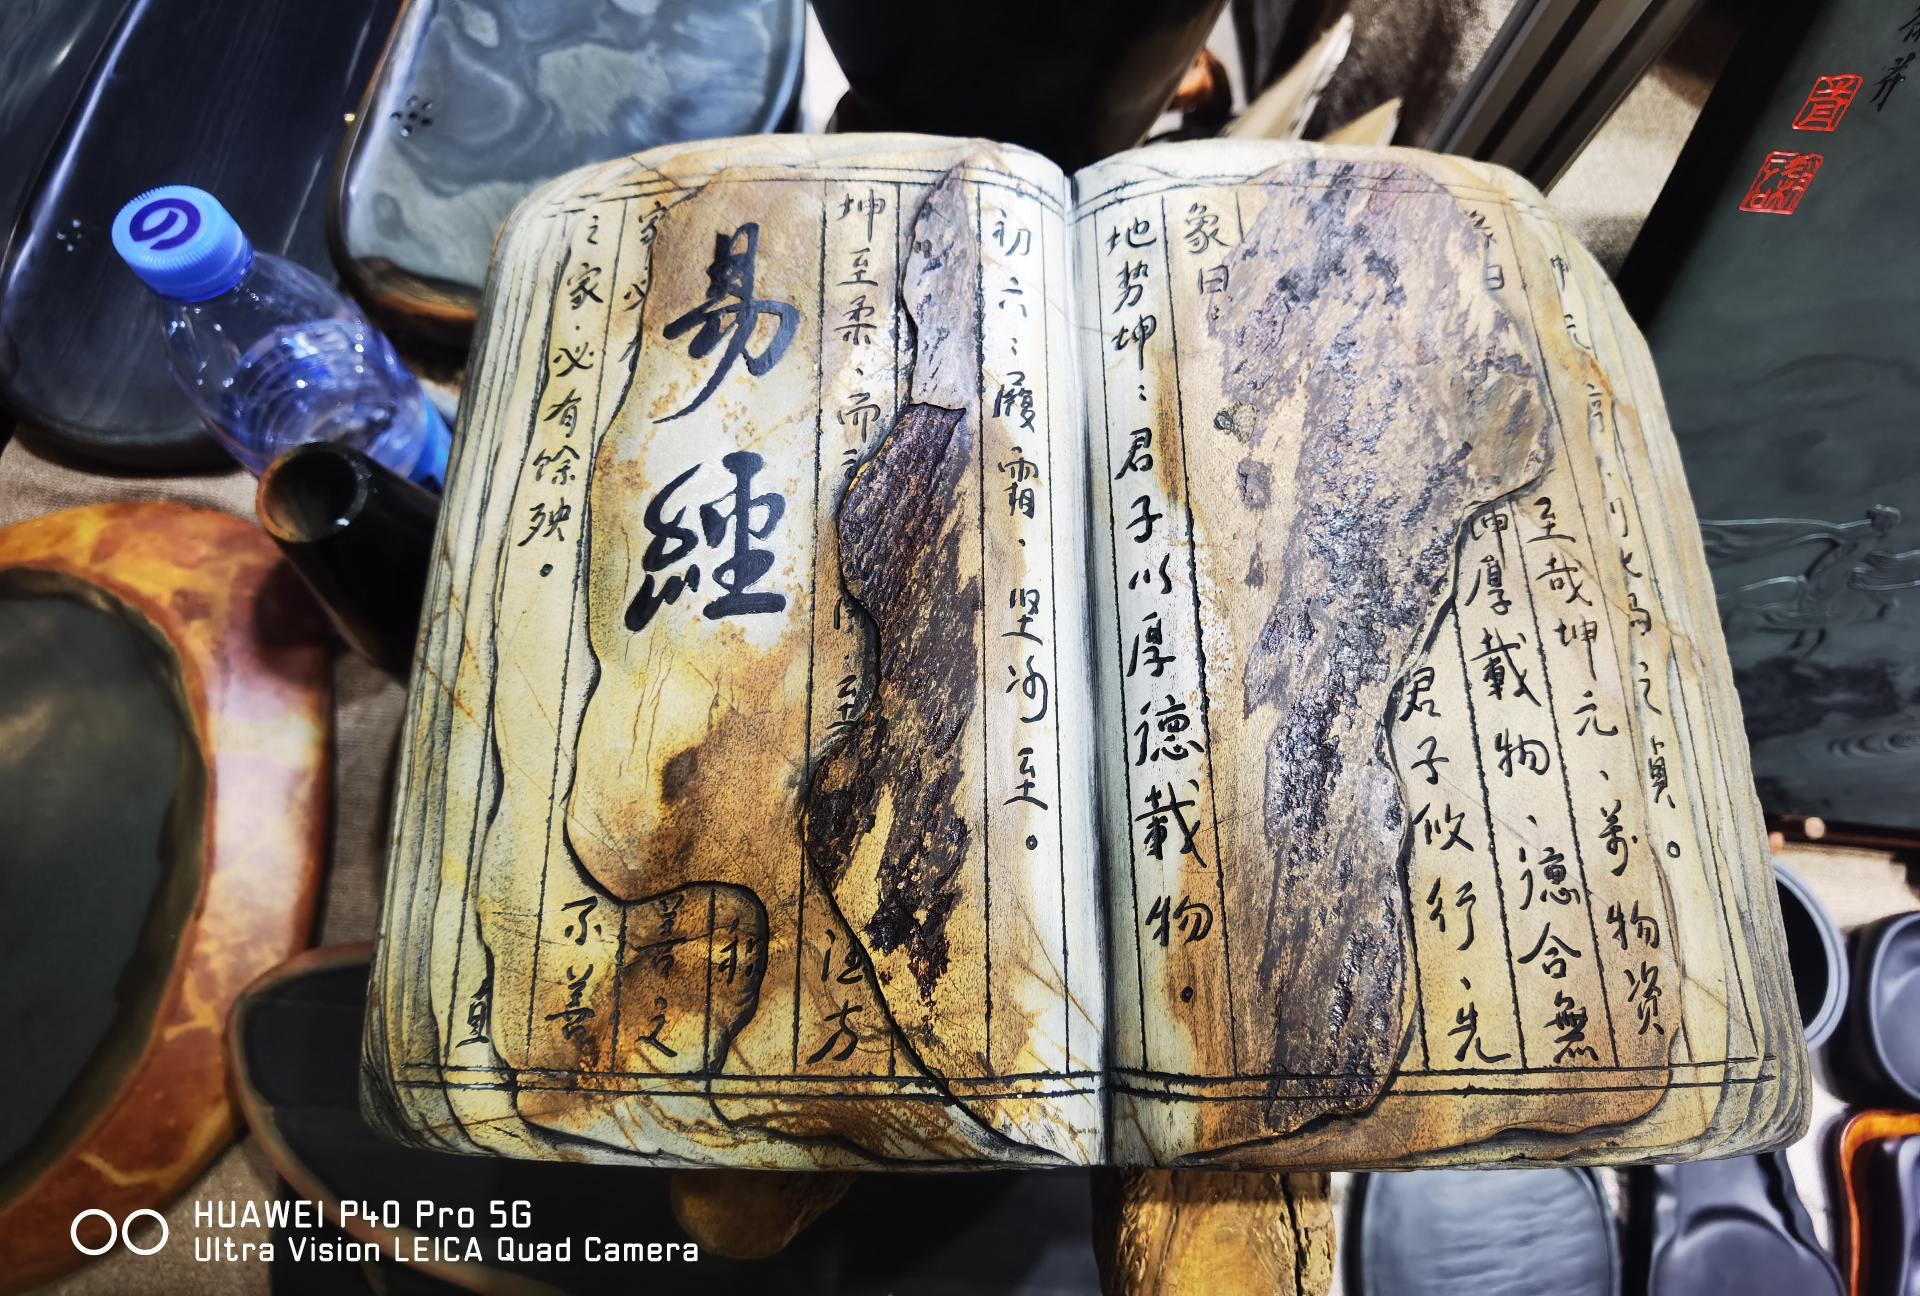 元亨利牝馬之貞。
至哉坤元、萬物资
坤厚載物、德合無
君子攸行、先
象曰
地势坤：君子以厚德載物。
初六：履霜、坚冰至。
坤至柔、而
至
方
易經
善之
之家·必有馀殃。
不善
の
HUAWEI P40 Pro 5G
Ultra Vision LEICA Quad Camera